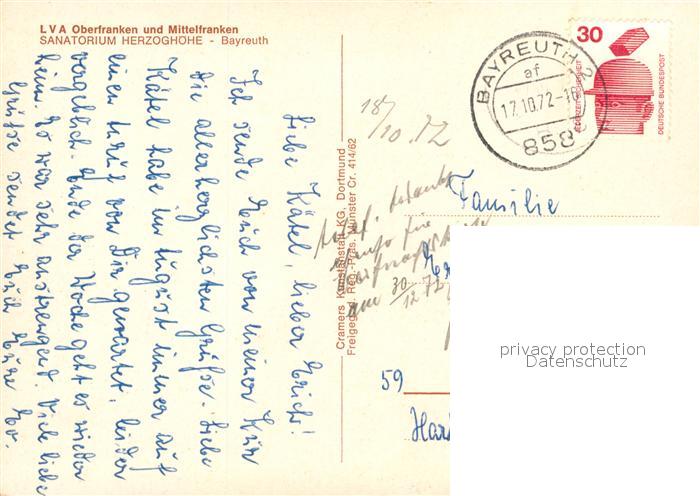 LVA Oberfranken und Mittelfranken
SANATORIUM HERZOGHÖHE - Bayreuth
Liebe Kätel, lieber Erich!
Ich sende Euch von meiner Kur
die allerherzlichsten Grüße. Liebe
Kätel habe im August immer auf
einen Anruf von Dir gewartet, leider
vergeblich. Ende der Woche geht es wieder
heim. Es war sehr anstrengend. Viele liebe
Grüße sendet Euch Eure Ev.
Cramers Kunstanstalt KG, Dortmund
Freigegeb. Reg.-Präs. Münster Cr. 414/62
BAYREUTH 2
af
17.10.72-18
858
30
JEDERZEIT SICHERHEIT
DEUTSCHE BUNDESPOST
18/10.72
für
am 30/12 72
Familie
59
privacy protection
Datenschutz